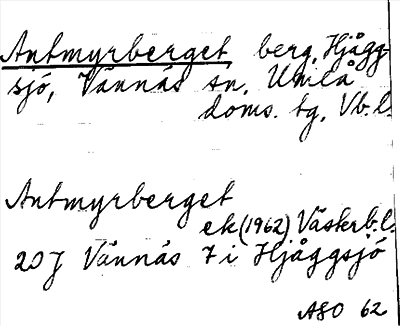 Antmyrberget, berg, Hjågg-
sjö, Vännäs sn, Umeå
doms. tg, Vb.l.
Antmyrberget
ek (1962) Västerb.l.
20J Vännäs 7 i Hjåggsjö
ASO 62